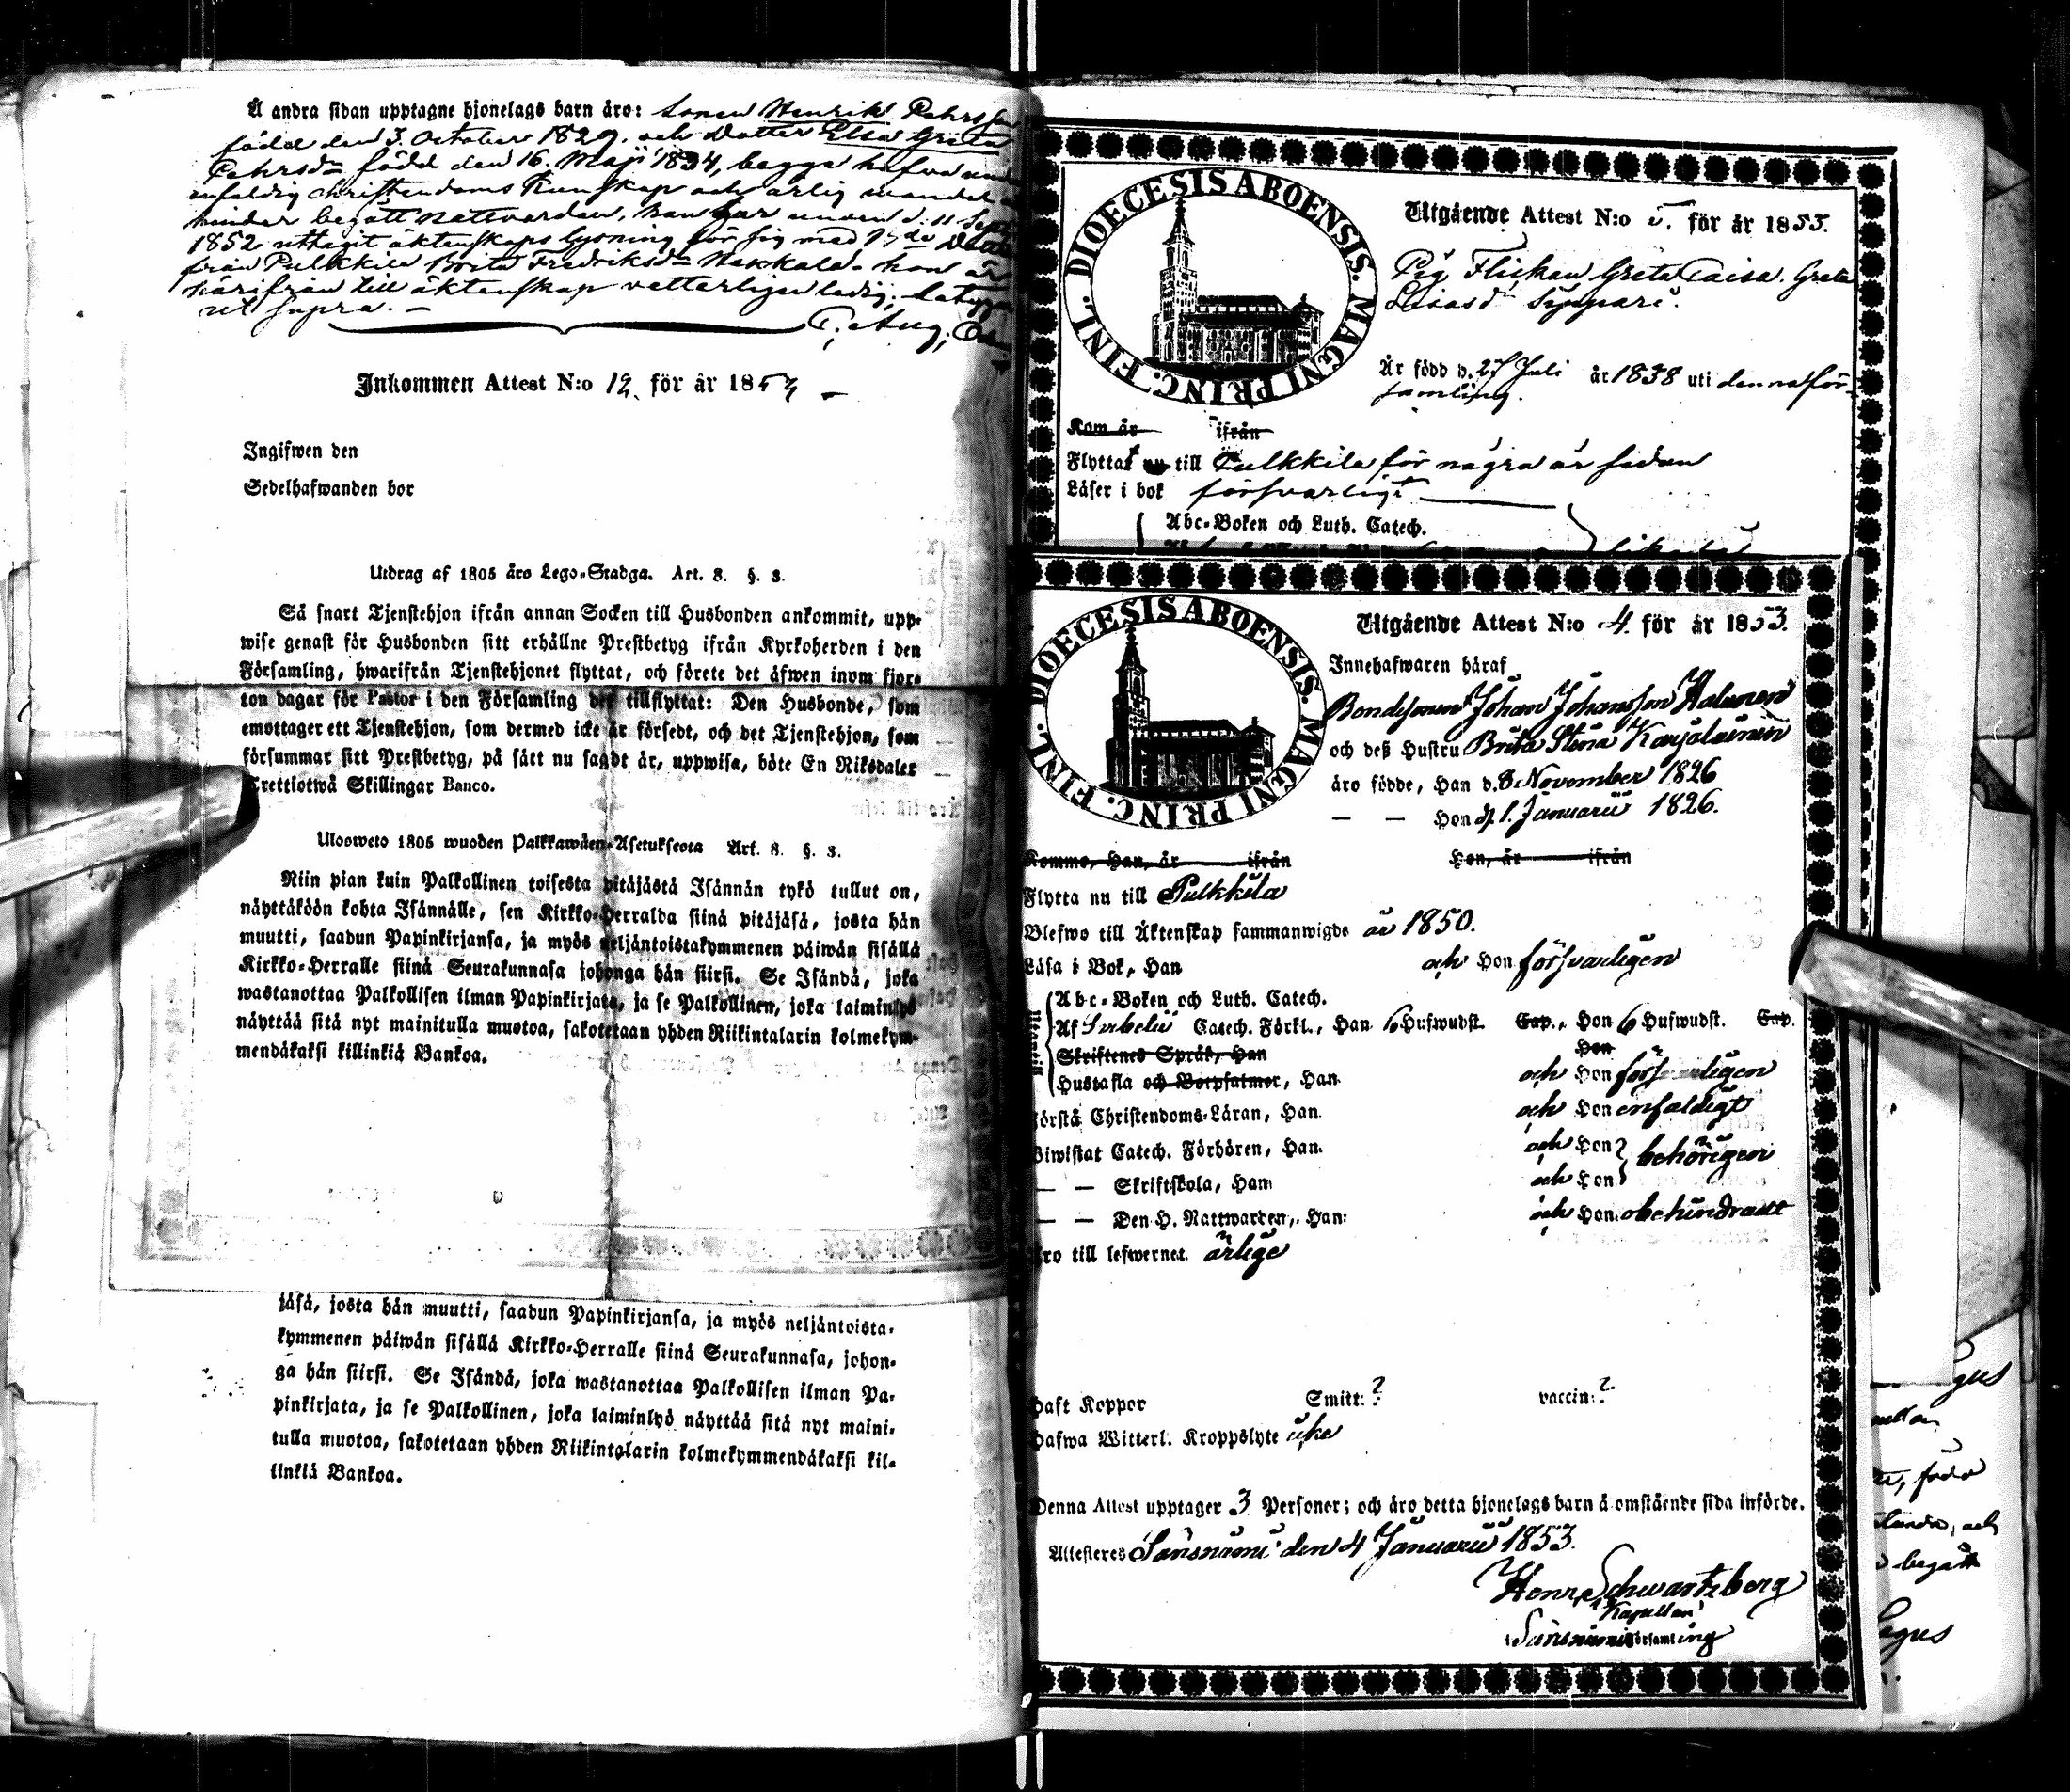 Å andra sidan upptagne hjonelags barn äro: Sonen Henrik Pehrsson
född den 3. October 1829. och Dotter Elsa Greta
Pehrsd:r född den 16. Maji 1834, begge hafva
enfaldig christendoms kunskap och ärlig vandel
hinder begått nattvarden, han har under d. 11 Sept.
1852 uttagit äktenskaps lysning för sig med
från Pulkkila Brita Fredriksd:r Hakkala. hon är
härifrån till äktenskap vetterligen ledig;
ut supra. —
Inkommen Attest N:o 12. för år 1853 —
Ingifwen den
Sedelhafwanden bor
Utdrag af 1805 åro Lego-Stadga. Art. 8. §. 3.
Så snart Tjenstehjon ifrån annan Socken till Husbonden ankommit, upp-
wise genast för Husbonden sitt erhållne Prestbetyg ifrån Kyrkoherden i den
Församling, hwarifrån Tjenstehjonet flyttat, och förete det äfwen inom fjor-
ton dagar för Pastor i den Församling det tillflyttat: Den Husbonde, som
emottager ett Tjenstehjon, som dermed icke är försedt, och det Tjenstehjon, som
försummar sitt Prestbetyg, på sätt nu sagdt är, uppwisa, böte En Riksdaler
Trettiotwå Skillingar Banco.
Ulosweto 1805 wuoden Palkkawäen-Asetuksesta Art. 8. §. 3.
Niin pian kuin Palkollinen toisesta pitäjästä Isännän tykö tullut on,
näyttäköön kohta Isännälle, sen Kirkko-Herralda siinä pitäjäsä, josta hän
muutti, saadun Papinkirjansa, ja myös neljäntoistakymmenen päiwän sisällä
Kirkko-Herralle siinä Seurakunnasa johonga hän siirsi. Se Isändä, joka
wastanottaa Palkollisen ilman Papinkirjata, ja se Palkollinen, joka laiminlyö
näyttää sitä nyt mainitulla muotoa, sakotetaan yhden Riikintalarin kolmekym-
mendäkaksi killinkiä Bankoa.
jäsä, josta hän muutti, saadun Papinkirjansa, ja myös neljäntoista-
kymmenen päiwän sisällä Kirkko-Herralle siinä Seurakunnasa, johon-
ga hän siirsi. Se Isändä, joka wastanottaa Palkollisen ilman Pa-
pinkirjata, ja se Palkollinen, joka laiminlyö näyttää sitä nyt maini-
tulla muotoa, sakotetaan yhden Riikintalarin kolmekymmendäkaksi kil-
linkiä Bankoa.
DIOECESIS ABOENSIS. MAGNI PRINC. FINL.
Utgående Attest N:o 5. för år 1853.
Pig Flickan Greta Caisa Greta
Lisasd:r Sippari.
Är född d. 27 Juli år 1838 uti denna för-
samling.
Kom år ifrån
Flyttat nu till Pulkkila för några år sedan
Läser i bok försvarligt
Abc-Boken och Luth. Catech.
DIOECESIS ABOENSIS. MAGNI PRINC. FINL.
Utgående Attest N:o 4. för år 1853.
Innehafwaren häraf
Bondesonen Johan Johansson Halunen
och deß Hustru Brita Stina Karjalainen
äro födde, Han d. 8 November 1826
— — Hon d. 1. Januarii 1826.
Komme, Han, år ifrån Hon, år ifrån
Flytta nu till Pulkkila
Blefwo till Äktenskap sammanwigde år 1850.
Läsa i Bok, Han och Hon försvarligen
Abc-Boken och Luth. Catech.
Af Svebelii Catech. Förkl., Han 6 Hufwudst. Cap., Hon 6 Hufwudst. Cap.
Skriftenes Språk, Han Hon
Hustafla och Botpsalmer, Han och Hon försvarligen
Förstå Christendoms-Läran, Han och Hon enfaldigt
Biwistat Catech. Förhören, Han och Hon behörigen
— — Skriftskola, Han och Hon
— — Den H. Nattwarden, Han och Hon obehindradt
Äro till lefwernet ärlige
Haft Koppor Smitt: ? vaccin: ?
Hafwa Witterl. Kroppslyte icke
Denna Attest upptager 3 Personer; och äro detta hjonelags barn å omstående sida införde.
Attesteres Säräsniemi den 4 Januarii 1853.
Henr. Schwartzberg
Kapellan
Säräsniemi församling